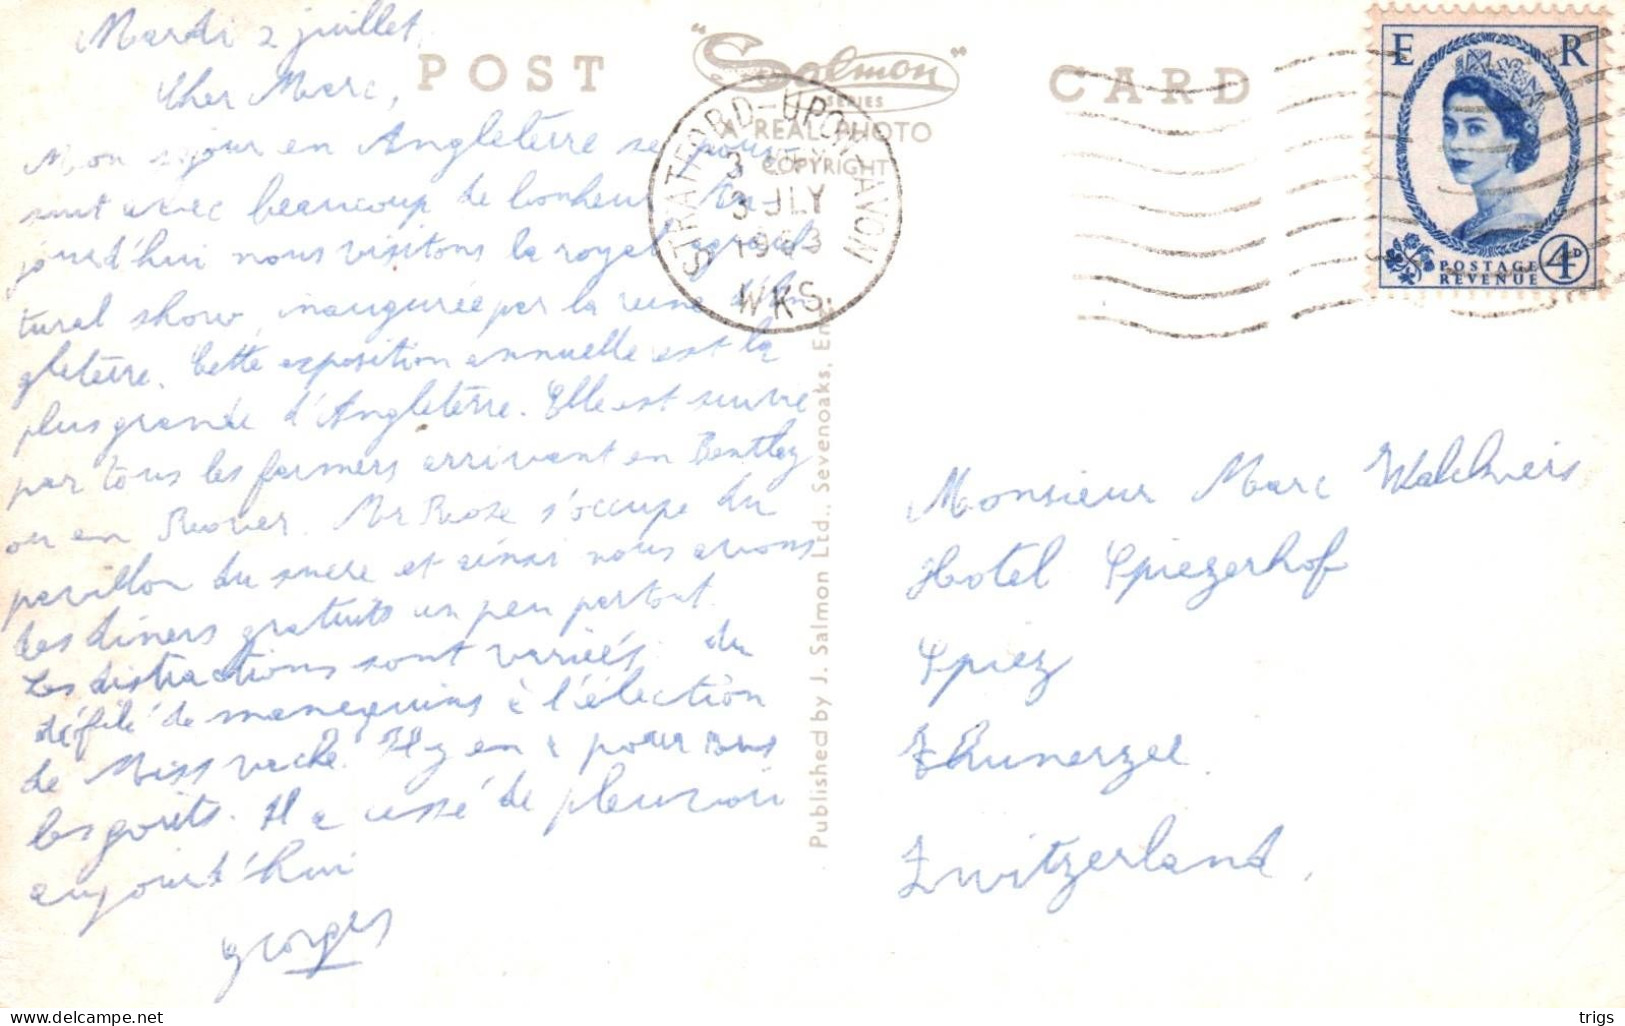 Mardi 2 juillet,
Cher Marc,
Mon séjour en Angleterre se pour-
suit avec beaucoup de bonheur. Au-
jourd'hui nous visitons la royal agricul-
tural show, inaugurée par la reine d'An-
gleterre. Cette exposition annuelle est la
plus grande d'Angleterre. Elle est suivie
par tous les farmers arrivant en Bentley
ou en Rover. Mr Rose s'occupe du
pavillon du sucre et ainsi nous avons
des diners gratuits un peu partout.
Les distractions sont variées: du
défilé de mannequins à l'élection
de Miss vache. Il y en a pour tous
les goûts. Il a cessé de pleuvoir
aujourd'hui
Georges
POST CARD
"Salmon"
SERIES
A REAL PHOTO
COPYRIGHT
STRATFORD-UPON-AVON
3 JLY
1963
WKS.
E R
POSTAGE
REVENUE
4D
Published by J. Salmon Ltd., Sevenoaks, En
Monsieur Marc
Hotel Spiezerhof
Spiez
Thunerzee
Zwitzerland.
trigs